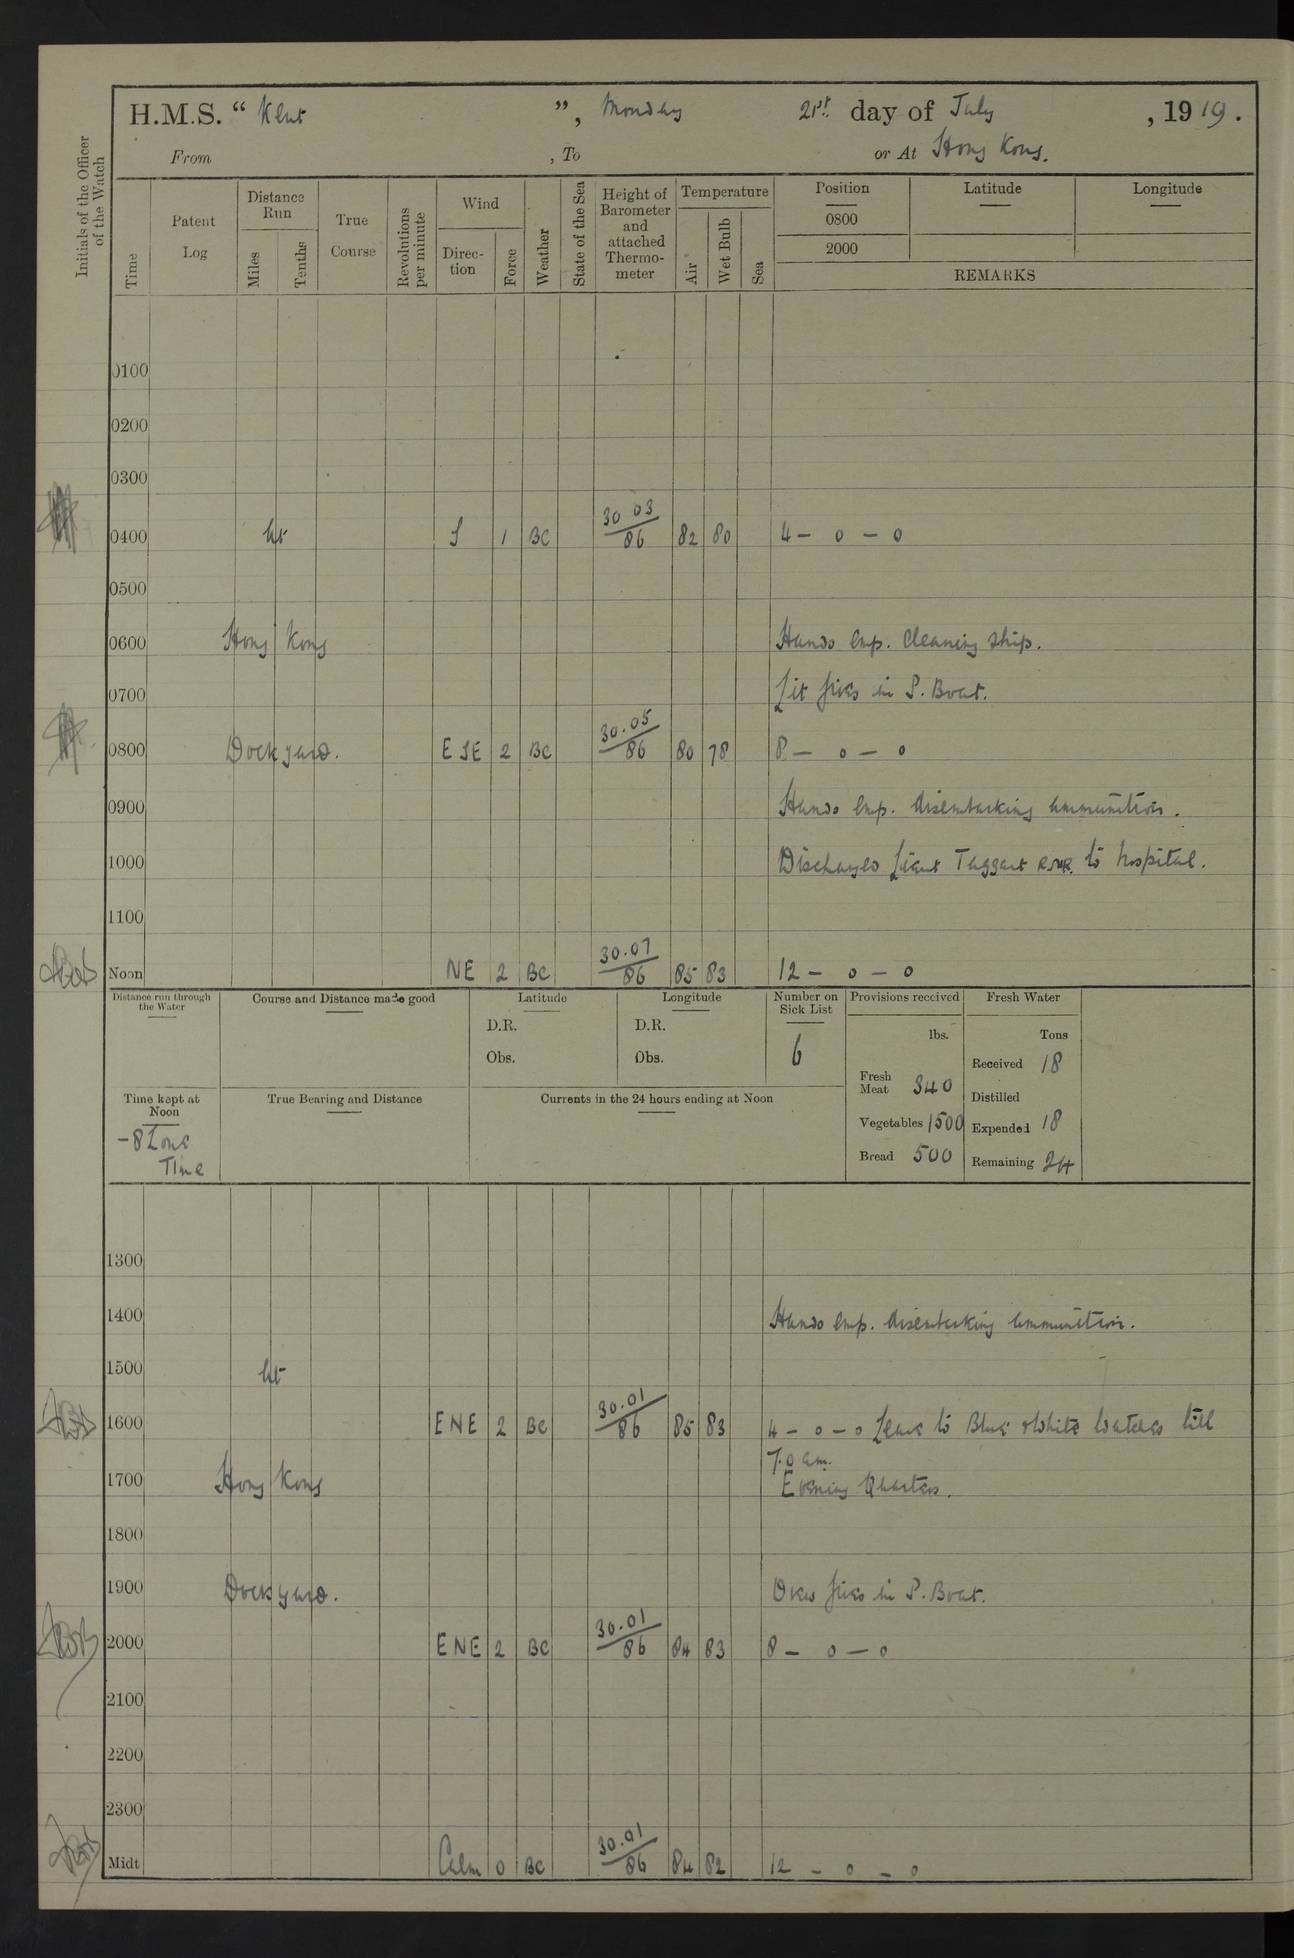 H.M.S. “ Kent ”, Monday 21st day of July, 1919.
From , To or At Hong Kong.
Initials of the Officer of the Watch
Time
Patent Log
Distance Run
Miles
Tenths
True Course
Revolutions per minute
Wind
Direc-tion
Force
Weather
State of the Sea
Height of Barometer and attached Thermo-meter
Temperature
Air
Wet Bulb
Sea
Position
Latitude
Longitude
0800
2000
REMARKS
0100
0200
0300
0400 At S 1 BC 30 03/86 82 80 4 - 0 - 0
0500
0600 Hong Kong Hands emp. cleaning ship.
0700 Lit fires in P. Boat.
0800 Dockyard. ESE 2 BC 30.05/86 80 78 8 - 0 - 0
0900 Hands emp. disembarking ammunition.
1000 Discharged Lieut Taggart RNR. to hospital.
1100
Noon NE 2 BC 30.07/86 85 83 12 - 0 - 0
Distance run through the Water
Course and Distance made good
Latitude
D.R.
Obs.
Longitude
D.R.
Obs.
Number on Sick List
6
Provisions received
lbs.
Fresh Meat 340
Vegetables 1500
Bread 500
Fresh Water
Tons
Received 18
Distilled
Expended 18
Remaining 24
Time kept at Noon
-8 Zone
Time
True Bearing and Distance
Currents in the 24 hours ending at Noon
1300
1400 Hands emp. disembarking ammunition.
1500 At
1600 ENE 2 BC 30.01/86 85 83 4 - 0 - 0 Leave to Blue & White watches till
7.0 am.
1700 Hong Kong Evening Quarters.
1800
1900 Dockyard. Drew fires in P. Boat.
2000 ENE 2 BC 30.01/86 84 83 8 - 0 - 0
2100
2200
2300
Midt Calm 0 BC 30.01/86 84 82 12 - 0 - 0